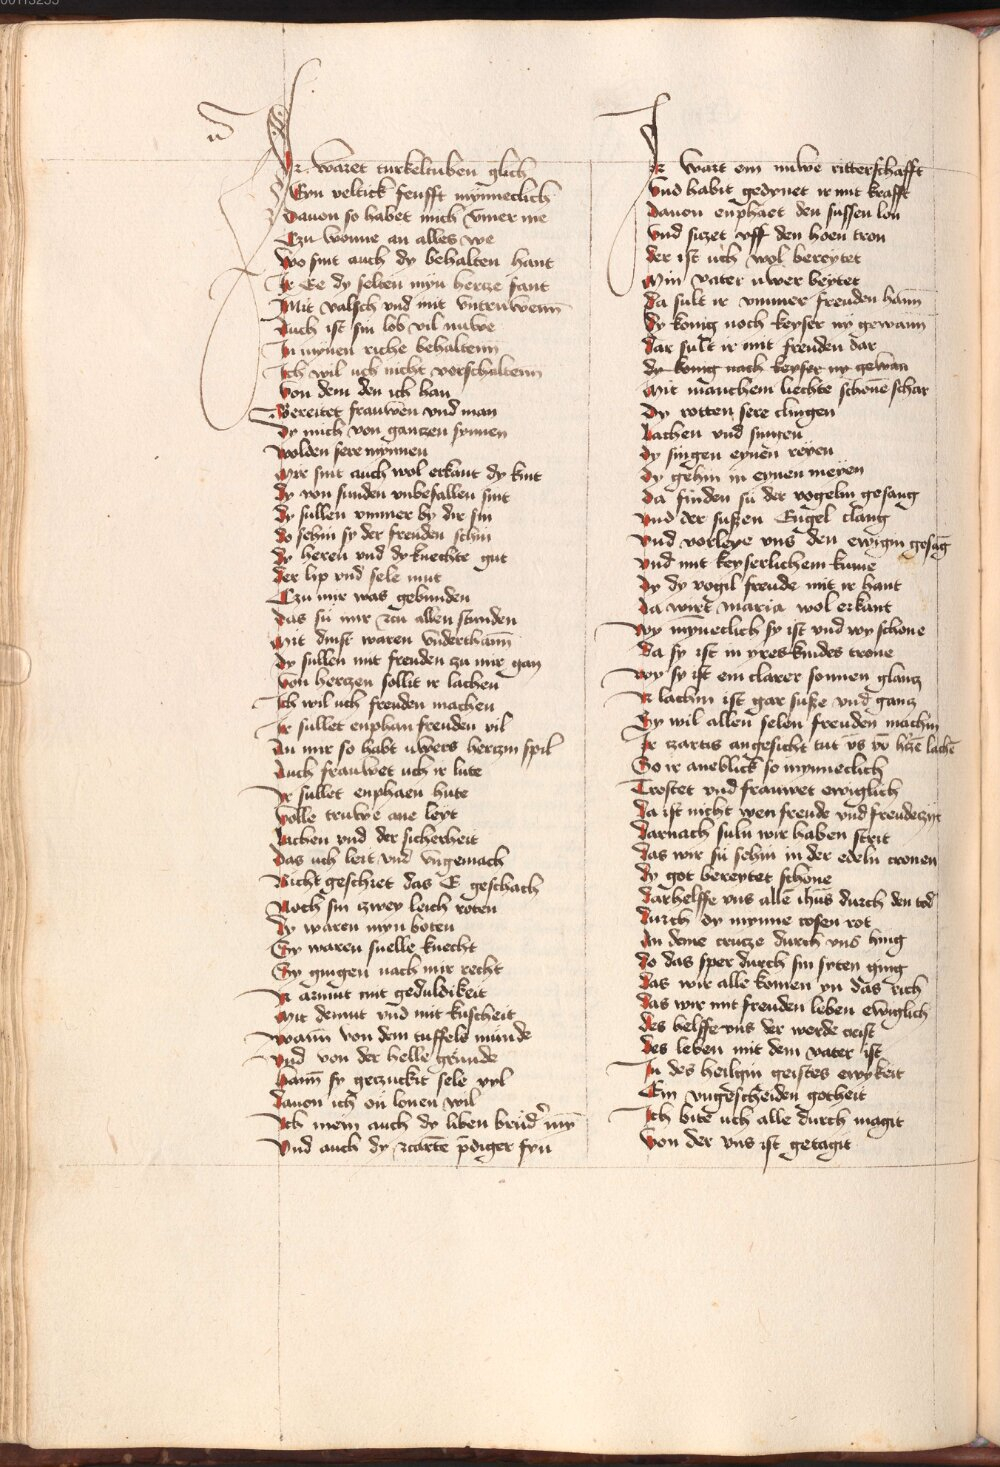 Ir waret turkeltuben glich
Eyn veltick seufft mynneclich
Dauon so habet mich vmer me
Czu wonne an alles we
Wo sint auch dy behalten hant
Ir Ee dy selten myn hertze fant
Mit valsch vnd mit vntruwenn
Auch ist sin lob vil nuwe
In mynen riche behaltenn
Ich wil uch nicht vorschaltenn
Von dem den ich han
Bereitet frauwen vnd man
Dy mich von gantzen synnen
Wolden sere mynnen
Mir sint auch wol erkant dy kint
Dy von sunden vnbefallen sint
Dy sullen vmmer by dir sin
Do sehin sy der freuden schin
Dy heren vnd dy knechte gut
Der lip vnd sele mut
Czu mir was gebunden
Das sü mir zcu allen stunden
Mit dinst waren vnderthann
Dy sullen mit freuden zu mir gan
Von hertzen sollit ir lachen
Ich wil uch freuden machen
Ir sullet enphan freuden vil
An mir so habt uwers hertzin spil
Auch frauwet uch ir lute
Ir sullet enphaen hute
Volle truwe ane leyt
Lachen vnd der sicherheit
Das uch leit vnd vngemach
Nicht geschiet das E geschach
Noch sin czwey leich roten
Dy waren myn boten
Sy waren snelle knecht
Sy gingen nach mir recht
Ir armut mit geduldikeit
Mit demut vnd mit kuscheit
Wann von dem tuffels munde
Vnd von der helle grunde
Hann sy geczuckit sele vyl
Dauon ich on lonen wil
Ich mein auch dy liben brud' my
Vnd auch dy zcarte p̄diger fyn
Ir wart ein nuwe ritterschafft
Vnd habit gedynet ir mit krafft
Dauon enphaet den sussen lon
Vnd siczet vff den hoen tron
Der ist uch wol bereytet
Min vater uwer beytet
Da sult ir vmmer freuden hann
Dy konig noch keyser ny gewann
Dar sult ir mit freuden dar
dy konig nach keyser ny gewan
Mit manchem liechte schone schar
Dy rotten sere clingen
Lachen vnd singen
Dy singen eynen reyen
Dy gehin in eynen meyen
Da finden sü der vogelin gesang
Vnd der sussen Engel clang
Vnd vorleye vns den ewigin gesāg
Vnd mit keyserlichem kunne
Dy dy vogil freude mit ir hant
Da wirt maria wol erkant
Wy mȳneclich sy ist vnd wy schone
Da sy ist in yres kindes trone
Wy sy ist ein clarer sonnen glantz
Ir lachin ist gar susze vnd gantz
Sy wil allen selen freuden machin
Ir czartis angesicht tut v̄s vō hczē lachē
So ir aneblick so mynneclich
Trostet vnd frauwet ewiglich
Da ist nicht wen freude vnd freudeczijt
Darnach suln wir haben strit
Das wir sü sehin in der edeln cronen
Dy got bereytet schone
Darhelffe vns allē ihūs durch den tod
Durch dy mynne rosen rot
An deme crutze durch vns hing
Do das sper durch sin syten ging
Das wir alle komen yn das rich
Das wir mit freuden leben ewiglich
Des helffe vns der werde geist
Des leben mit dem vater ist
In des heiligin geistes ewykeit
Ein vngescheiden gotheit
Ich bite uch alle durch magit
Von der vns ist getagit